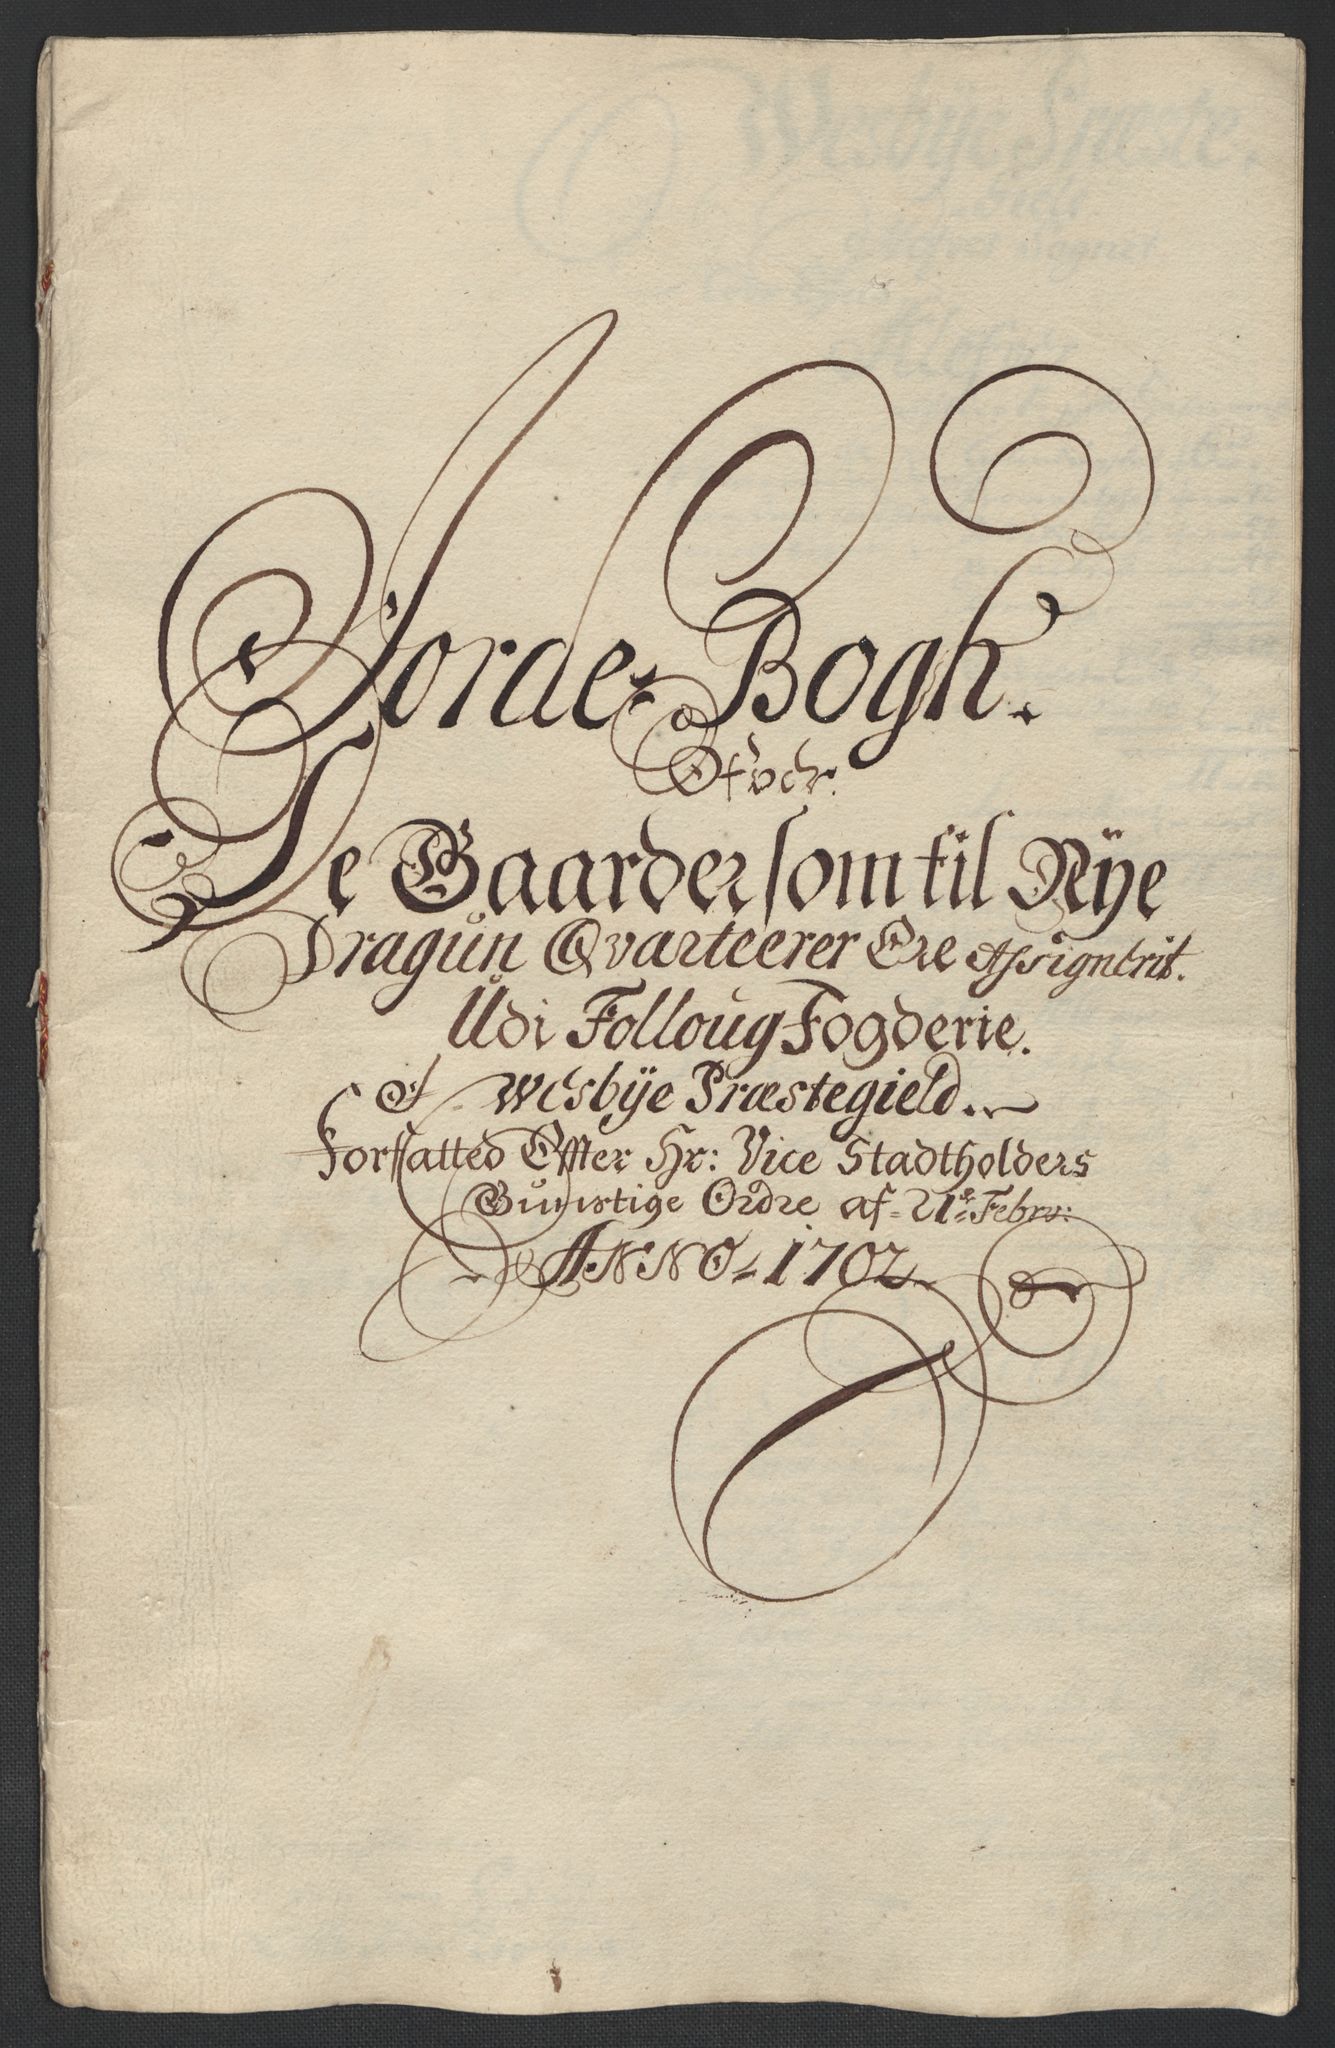 Jorde Bogh.
Ofver
De Gaarder som til Nÿe
Dragŭn Qvarteerer Ere Assignerit.
Udi Folloug Fogderie.
Af Wesbÿe Præstegield.
Forfatted Effter Hr: Vice Stadtholders
Gunstige Ordre af 21de Febrv:
ANNO 1702